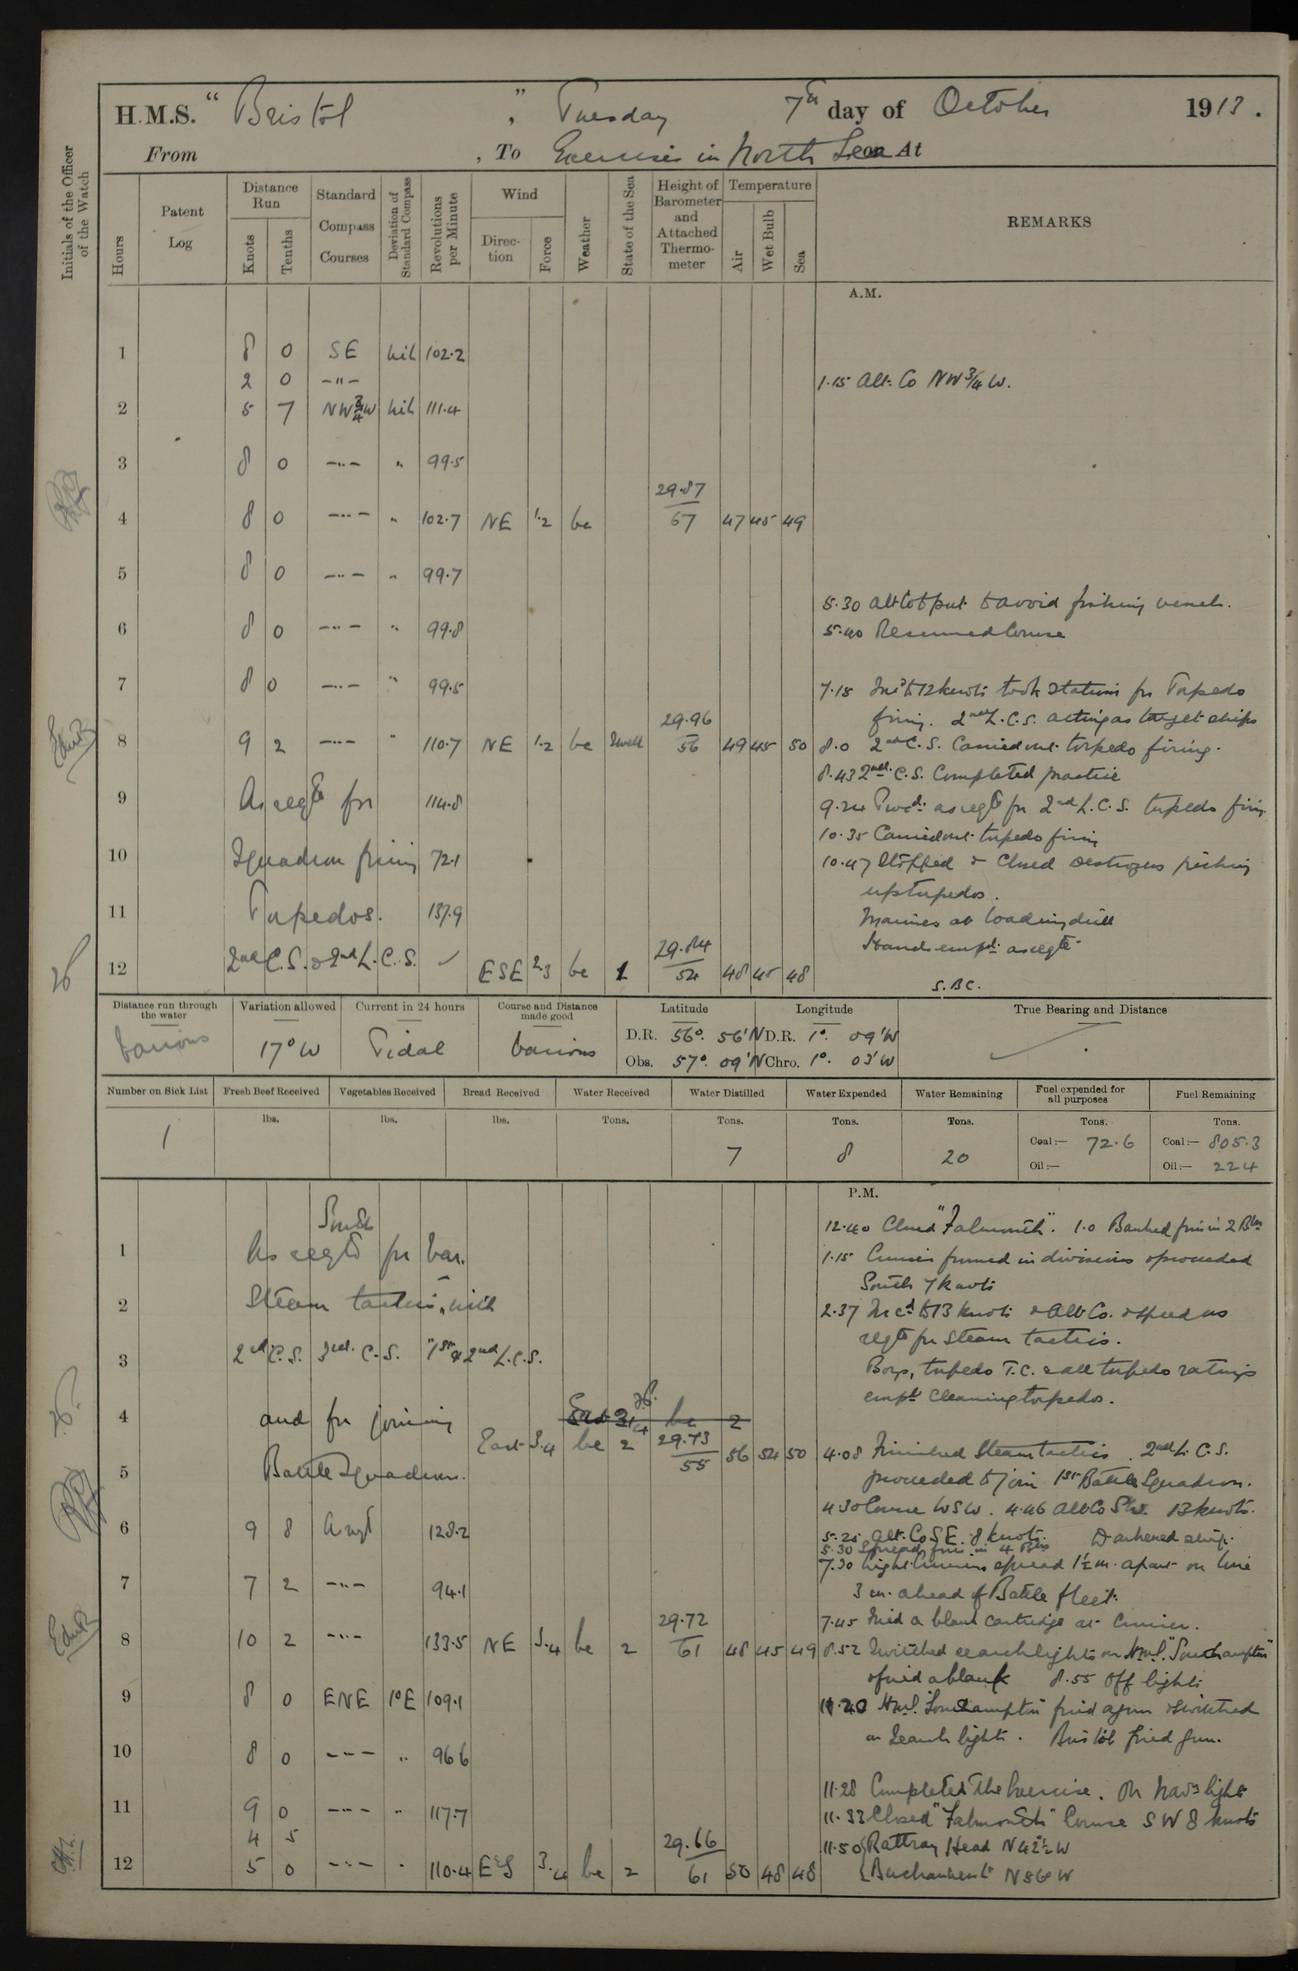 H.M.S. "Bristol", Tuesday 7th day of October 1913.
From , To Exercises in North Sea or At
Initials of the Officer of the Watch
Hours
Patent Log
Distance Run
Knots
Tenths
Standard Compass Courses
Deviation of Standard Compass
Revolutions per Minute
Wind
Direction
Force
Weather
State of the Sea
Height of Barometer and Attached Thermometer
Temperature
Air
Wet Bulb
Sea
REMARKS
A.M.
1 8 0 SE nil 102.2
2 0 -"- 1.15 Alt. Co NW 3/4 W.
2 5 7 NW 3/4 W nil 111.4
3 8 0 -"- " 99.5
29.87
4 8 0 -"- " 102.7 NE 1.2 bc 67 47 45 49
5 8 0 -"- " 99.7
5.30 Alt Co to avoid fishing vessels.
6 8 0 -"- " 99.8 5.40 Resumed Course
7 8 0 -"- " 99.5 7.15 Incd to 12 knots took stations for Torpedo
29.96 firing. 2nd L.C.S. acting as target ships
8 9 2 -"- " 110.7 NE 1.2 bc Swell 56 49 45 50 8.0 2nd C.S. Carried out torpedo firing.
8.43 2nd C.S. Completed practice
9 As reqte for 114.8 9.24 Procd. as reqte for 2nd L.C.S. torpedo firing
10.35 Carried out torpedo firing
10 Squadron firing 72.1 10.47 Stopped & Closed Destroyers picking
up torpedos.
11 Torpedos. 137.9 Marines at loading drill
29.84 Hands empd. as reqte
12 2nd C.S. & 2nd L.C.S. ESE 2.3 bc 1 54 48 45 48
S.B.C.
Distance run through the water
Various
Variation allowed
17° W
Current in 24 hours
Tidal
Course and Distance made good
Various
Latitude
D.R. 56° 56' N
Obs. 57° 09' N
Longitude
D.R. 1° 09' W
Chro. 1° 03' W
True Bearing and Distance
Number on Sick List
1
Fresh Beef Received
lbs.
Vegetables Received
lbs.
Bread Received
lbs.
Water Received
Tons.
Water Distilled
Tons.
7
Water Expended
Tons.
8
Water Remaining
Tons.
20
Fuel expended for all purposes
Tons.
Coal:— 72.6
Oil:—
Fuel Remaining
Tons.
Coal:— 805.3
Oil:— 224
P.M.
South 12.40 Closed "Falmouth". 1.0 Banked fires in 2 Blrs
1 As reqte for var. 1.15 Cruisers formed in divisions & proceeded
South 7 knots
2 Steam tactics, with 2.37 Incd to 13 knots & Alt Co. & speed as
reqte for steam tactics.
3 2nd C.S. 3rd C.S. 1st & 2nd L.C.S. Boys, torpedo T.C. & all torpedo ratings
empd. Cleaning torpedos.
4 and for joining bc 2
East 3.4 bc 2 29.73 55 56 54 50 4.08 Finished Steam tactics. 2nd L.C.S.
5 Battle Squadron. proceeded to join 1st Battle Squadron.
4.30 Course WSW. 4.46 Alt Co 13 knots.
6 9 8 As reqd 128.2 5.25 Alt. Co SE. 8 knots. Darkened ship.
5.30 Spread fires in 4 Blrs
7.30 Light Cruisers spread 1½ m. apart on line
7 7 2 -"- 94.1 3 m. ahead of Battle fleet.
29.72 7.45 Fired a blank cartridge at Cruiser.
8 10 2 -"- 133.5 NE 3.4 bc 2 61 48 45 49 8.52 Switched searchlights on H.M.S. "Southampton"
& fired a blank 8.55 Off lights
9 8 0 ENE 1°E 109.1 11.20 H.M.S. Southampton fired a gun & switched
on Searchlights. Bristol fired gun.
10 8 0 -"- " 96.6
11.28 Completed the Exercise. On Navn lights
11 9 0 -"- " 117.7 11.33 Closed "Falmouth" Course SW 8 knots
4 5 29.66 11.50 { Rattray Head N 42½ W
12 5 0 -"- " 110.4 E'S 3.4 bc 2 61 50 48 48 { Buchanness Lt N 56 W